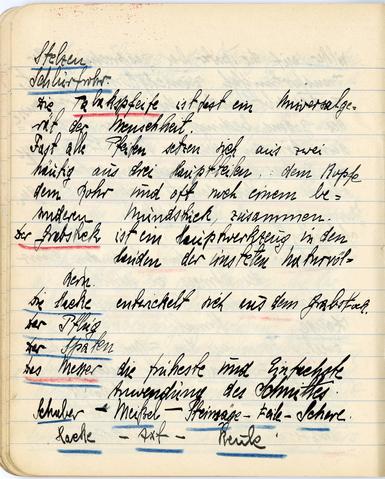 Stelzen
Schlürfrohr.
Die Tabakspfeife ist fast ein Universalge-
rät der Menschheit.
Fast alle Pfeifen setzen sich aus zwei
häufig aus drei Hauptteilen: dem Kopfe
dem Rohr und oft noch einem be-
sonderen Mundstück, zusammen.
Der Grabstock ist ein Hauptwerkzeug in den
Händen der meisten Naturvöl-
kern.
Die Hacke entwickelt sich aus dem Grabstock.
Der Pflug
Der Spaten
Das Messer die früheste und Einfachste
Anwendung des Schnittes.
Schaber – Meißel – Steinsäge – Feile – Schere.
Hacke – Axt – Keule